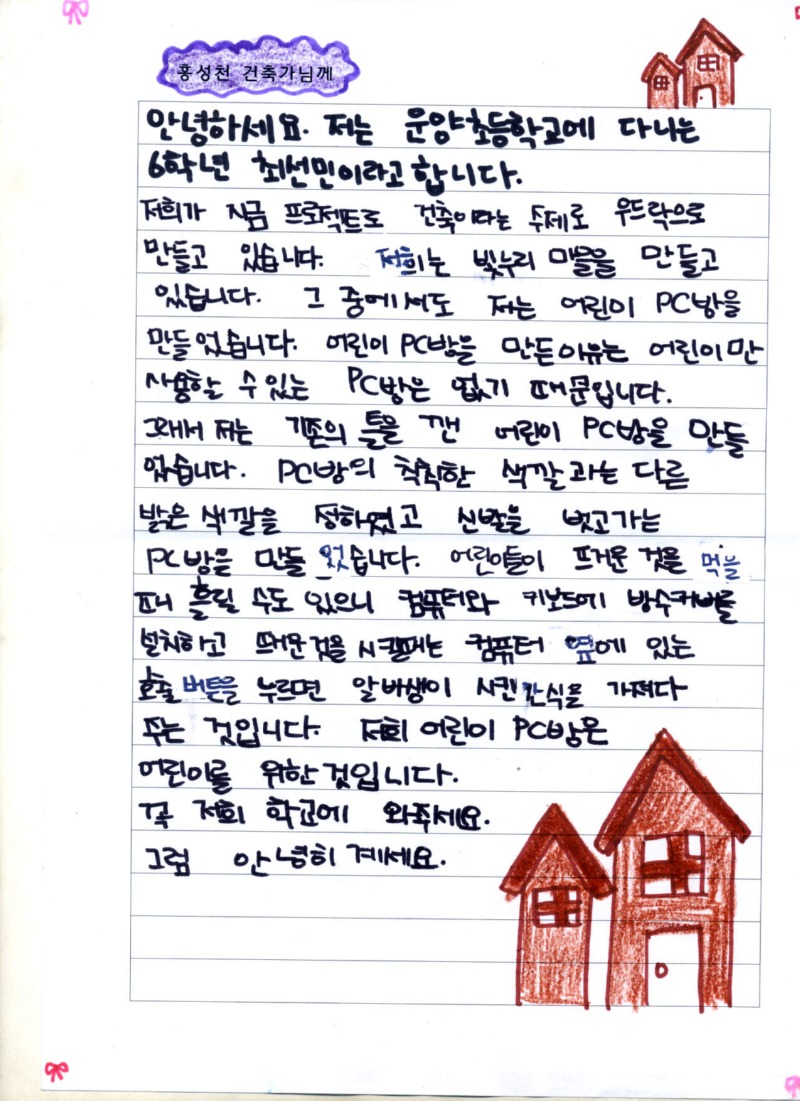 홍성천 건축가님께
안녕하세요. 저는 운양초등학교에 다니는
6학년 최선민이라고 합니다.
저희가 지금 프로젝트로 건축이라는 주제로 우드락으로
만들고 있습니다. 저희는 빛누리 마을을 만들고
있습니다. 그 중에서도 저는 어린이 PC방을
만들었습니다. 어린이 PC방을 만든이유는 어린이만
사용할 수 있는 PC방은 없기 때문입니다.
그래서 저는 기존의 틀을 깬 어린이 PC방을 만들
었습니다. PC방의 칙칙한 색깔과는 다른
밝은 색깔을 정하였고 신발을 벗고가는
PC방을 만들었습니다. 어린이들이 뜨거운 것을 먹을
때 흘릴 수도 있으니 컴퓨터와 키보드에 방수커버를
설치하고 뜨거운것을 시킬때는 컴퓨터 옆에 있는
호출 버튼을 누르면 알바생이 시킨 간식을 가져다
주는 것입니다. 저희 어린이 PC방은
어린이를 위한것입니다.
꼭 저희 학교에 와주세요.
그럼 안녕히 계세요.